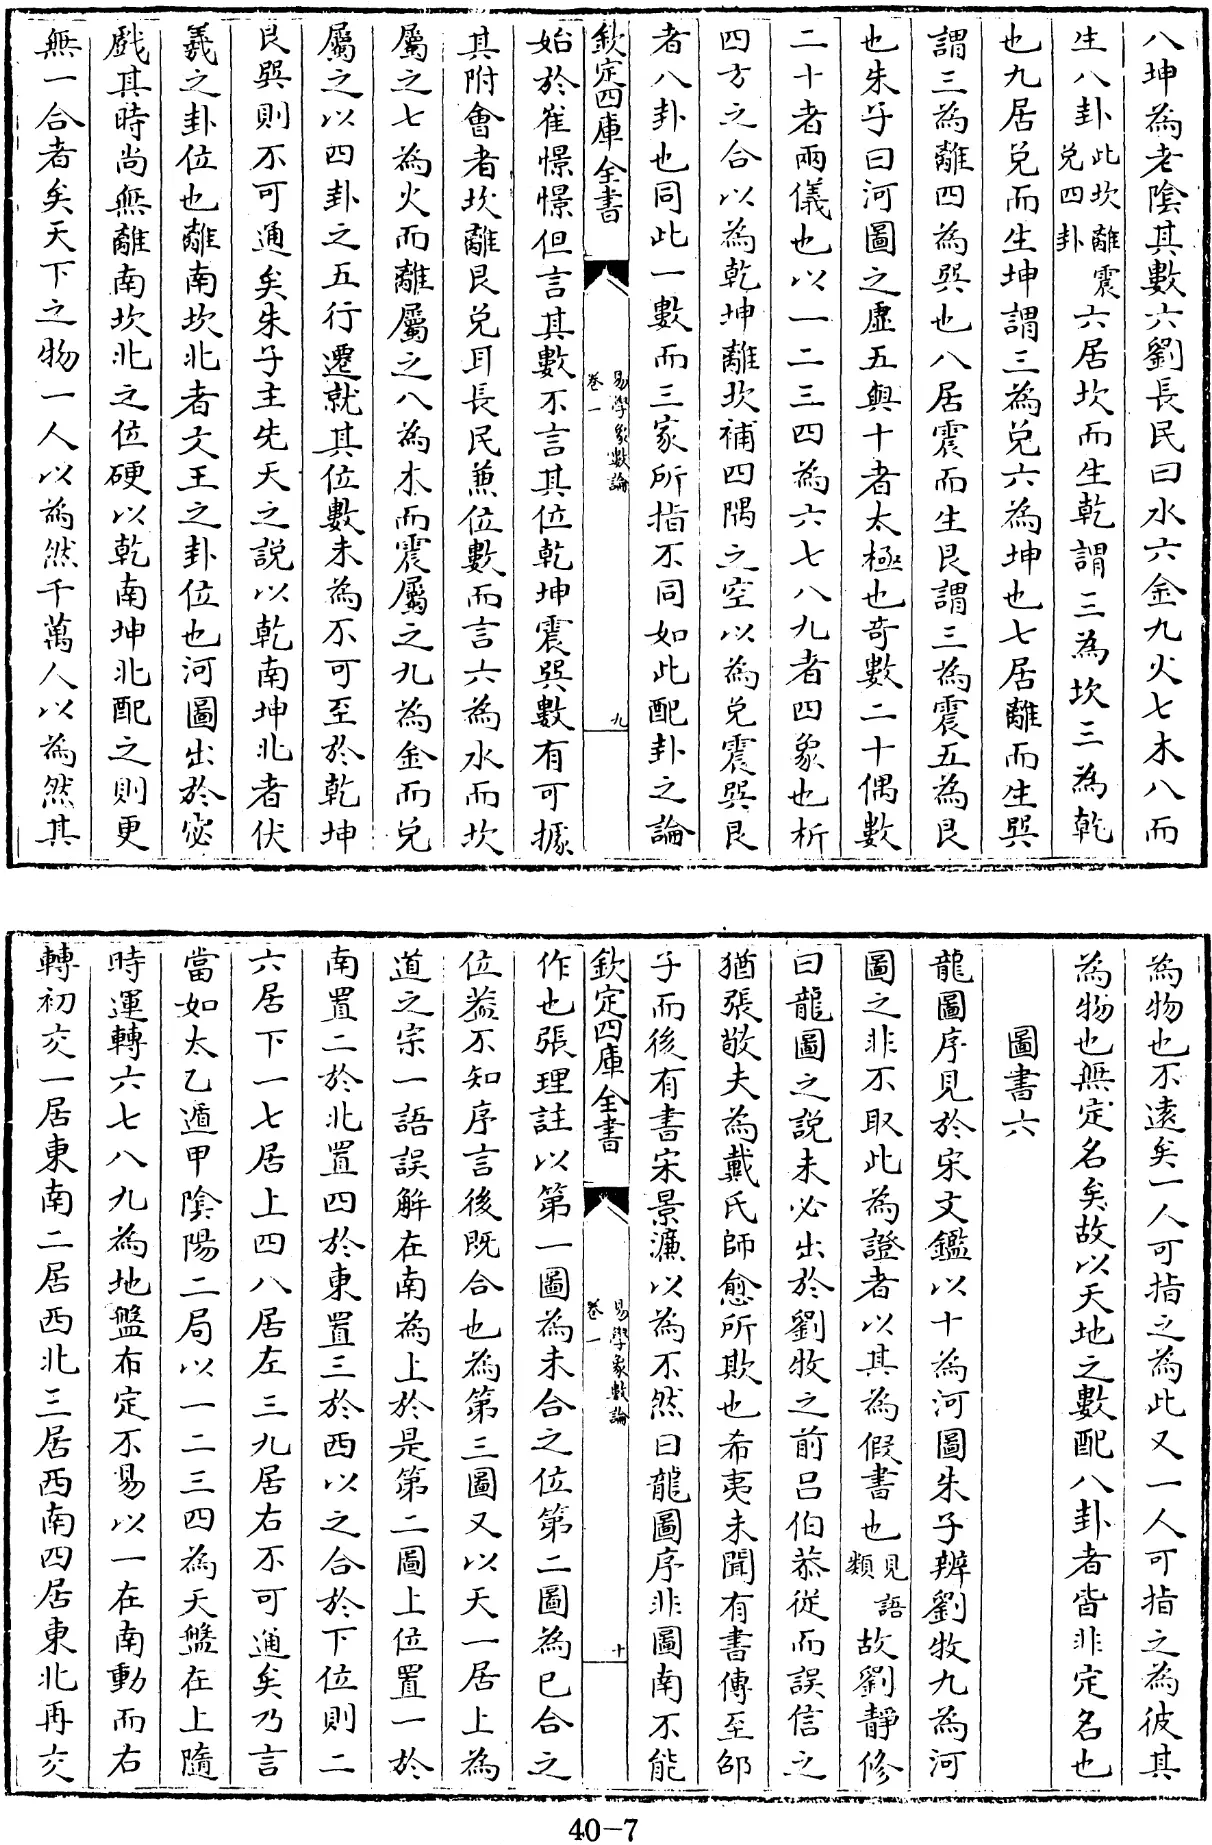 八坤為老陰其數六劉長民曰水六金九火七木八而
生八卦此坎離震兌四卦六居坎而生乾謂三為坎三為乾
也九居兌而生坤謂三為兌六為坤也七居離而生巽
謂三為離四為巽也八居震而生艮謂三為震五為艮
也朱子曰河圖之虛五與十者太極也奇數二十偶數
二十者兩儀也以一二三四為六七八九者四象也析
四方之合以為乾坤離坎補四隅之空以為兌震巽艮
者八卦也同此一數而三家所指不同如此配卦之論
欽定四庫全書 易學象數論 卷一 九
始於崔憬憬但言其數不言其位乾坤震巽數有可據
其附會者坎離艮兌耳長民兼位數而言六為水而坎
屬之七為火而離屬之八為木而震屬之九為金而兌
屬之以四卦之五行遷就其位數未為不可至於乾坤
艮巽則不可通矣朱子主先天之説以乾南坤北者伏
羲之卦位也離南坎北者文王之卦位也河圖出於宓
戲其時尚無離南坎北之位硬以乾南坤北配之則更
無一合者矣天下之物一人以為然千萬人以為然其
為物也不遠矣一人可指之為此又一人可指之為彼其
為物也無定名矣故以天地之數配八卦者皆非定名也
圖書六
龍圖序見於宋文鑑以十為河圖朱子辨劉牧九為河
圖之非不取此為證者以其為假書也見語類故劉靜修
曰龍圖之説未必出於劉牧之前呂伯恭從而誤信之
猶張敬夫為戴氏師愈所欺也希夷未聞有書傳至邵
子而後有書宋景濂以為不然曰龍圖序非圖南不能
欽定四庫全書 易學象數論 卷一 十
作也張理註以第一圖為未合之位第二圖為已合之
位葢不知序言後既合也為第三圖又以天一居上為
道之宗一語誤解在南為上於是第二圖上位置一於
南置二於北置四於東置三於西以之合於下位則二
六居下一七居上四八居左三九居右不可通矣乃言
當如太乙遁甲陰陽二局以一二三四為天盤在上隨
時運轉六七八九為地盤布定不易以一在南動而右
轉初交一居東南二居西北三居西南四居東北再交
40-7